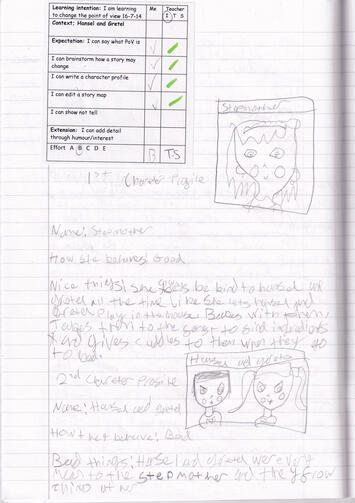 Learning intention: I am learning to change the point of view 16-7-14
Me
Teacher
I T S
Context; Hansel and Gretel
Expectation: I can say what PoV is
I can brainstorm how a story may change
I can write a character profile
I can edit a story map
I can show not tell
Extension: I can add detail through humour/interest
Effort A B C D E
B
T-S
Stepmother
1st Charater Profile
Name: Stepmother
How she behaves: Good
Nice things: She be kind to hansel and
gretel all the time like she lets hansel and
Gretel Play in the house. Bakes with them.
Takes them to the to find ingredients
and gives cuddles to them when they go
to bed.
Hansel and gretel
2nd Charater Profile
Name: Hansel and gretel
How they behave: Bad
Bad things: Hansel and gretel were very
mean to the stepmother and they frow
things at her